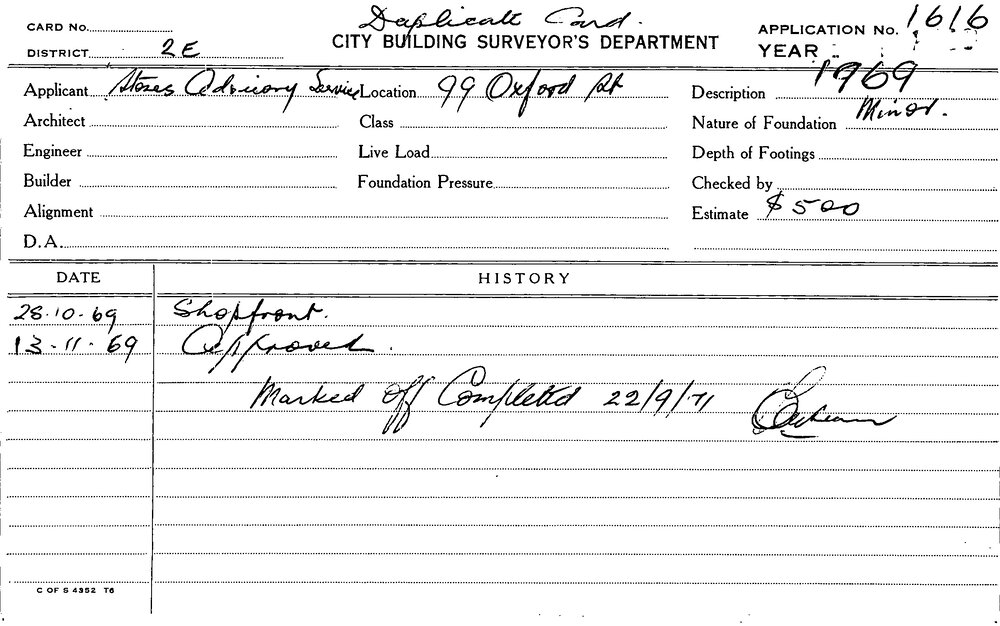 Duplicate Card.
CARD No.
CITY BUILDING SURVEYOR'S DEPARTMENT
APPLICATION No. 1616
DISTRICT 2E
YEAR 1969
Applicant Stores Advisory Service Location 99 Oxford St Description Minor.
Architect Class Nature of Foundation
Engineer Live Load Depth of Footings
Builder Foundation Pressure Checked by
Alignment Estimate $500
D.A.
DATE HISTORY
28.10.69 Shopfront.
13-11-69 Approved.
Marked Off Completed 22/9/71
C OF S 4352 T6